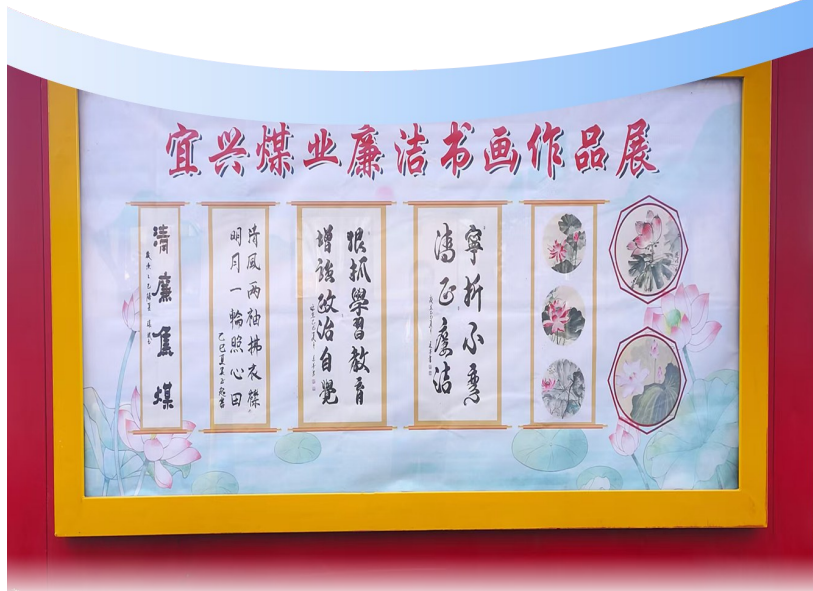 宜兴煤业廉洁书画作品展
清廉焦煤
清風兩袖拂衣襟
明月一輪照心田
狠抓學習教育
增強政治自覺
寧折不彎
清正廉洁